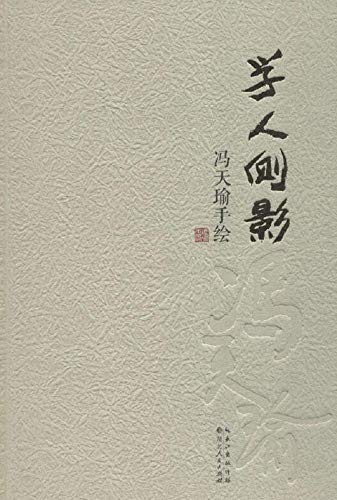 学人侧影
冯天瑜手绘
冯天瑜
长江出版传媒
湖北人民出版社